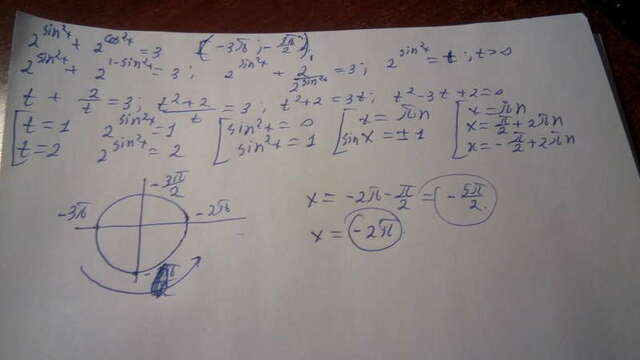 2^{sin²x} + 2^{cos²x} = 3 (-3π; -3π/2)
2^{sin²x} + 2^{1-sin²x} = 3; 2^{sin²x} + 2/2^{sin²x} = 3; 2^{sin²x} = t; t>0
t + 2/t = 3; (t²+2)/t = 3; t²+2 = 3t; t²-3t+2=0
[t=1 2^{sin²x}=1 [sin²x=0 [x=πn [x=πn
t=2 2^{sin²x}=2 sin²x=1 sinx=±1 x=π/2+2πn
x=-π/2+2πn
-3π/2
-3π -2π
x = -2π - π/2 = -5π/2
x = -2π